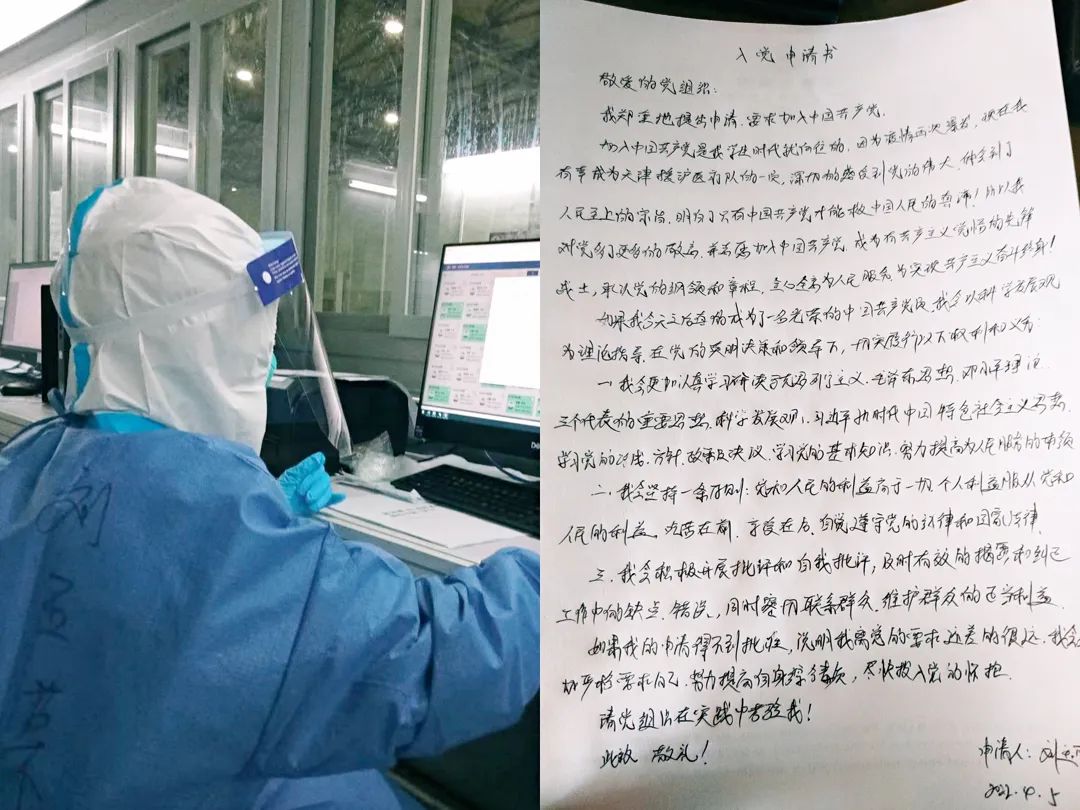 入党申请书
敬爱的党组织：
我郑重地提出申请，要求加入中国共产党。
加入中国共产党是我学生时代就向往的，因为疫情再次暴发，现在我
有幸成为天津援沪医疗队的一员，深切的感受到党的伟大，体会到了
人民至上的宗旨，明白了只有中国共产党才能救中国人民的真谛！所以我
对党多了更多的敬畏，并志愿加入中国共产党，成为有共产主义觉悟的先锋
战士，承认党的纲领和章程，全心全意为人民服务，为实现共产主义奋斗终身！
如果我今天之后逐渐成为了一名光荣的中国共产党员，我会以科学发展观
为理论指导，在党的英明决策和领导下，切实履行以下权利和义务：
一、我会更加认真学习马克思列宁主义、毛泽东思想、邓小平理论、
三个代表的重要思想、科学发展观、习近平新时代中国特色社会主义思想，
学习党的路线、方针、政策及决议，学习党的基本知识，努力提高为人民服务的本领
二、我会坚持一条原则：党和人民的利益高于一切，个人利益服从党和
人民的利益，吃苦在前，享受在后，自觉遵守党的纪律和国家法律。
三、我会积极开展批评和自我批评，及时有效的揭露和纠正
工作中的缺点、错误，同时密切联系群众，维护群众的正当利益
如果我的申请得不到批准，说明我离党的要求还差的很远，我会
严格要求自己，努力提高自身综合素质，尽快投入党的怀抱
请党组织在实践中考验我！
此致 敬礼！
申请人：刘
2022.4.5